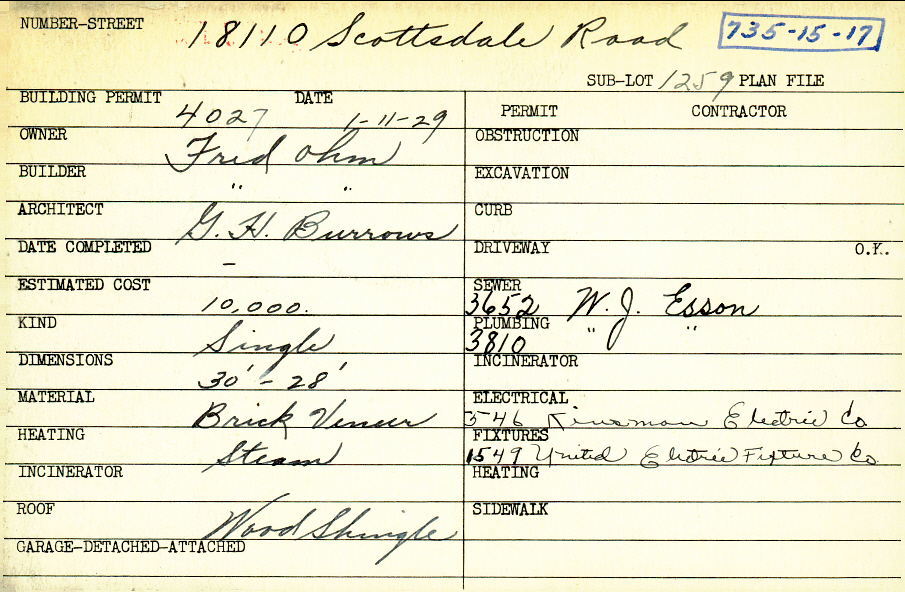 NUMBER-STREET 18110 Scottsdale Road 735-15-17
SUB-LOT 1259 PLAN FILE
BUILDING PERMIT 4027 DATE 1-11-29
PERMIT CONTRACTOR
OWNER Fred Ohm
OBSTRUCTION
BUILDER " "
EXCAVATION
ARCHITECT G. H. Burrows
CURB
DATE COMPLETED -
DRIVEWAY O.K.
ESTIMATED COST 10,000.
SEWER 3652 W. J. Esson
KIND Single
PLUMBING 3810 " "
DIMENSIONS 30' - 28'
INCINERATOR
MATERIAL Brick Veneer
ELECTRICAL 546 Kinsman Electric Co
HEATING Steam
FIXTURES 1549 United Electric Fixture Co.
INCINERATOR
HEATING
ROOF Wood Shingle
SIDEWALK
GARAGE-DETACHED-ATTACHED